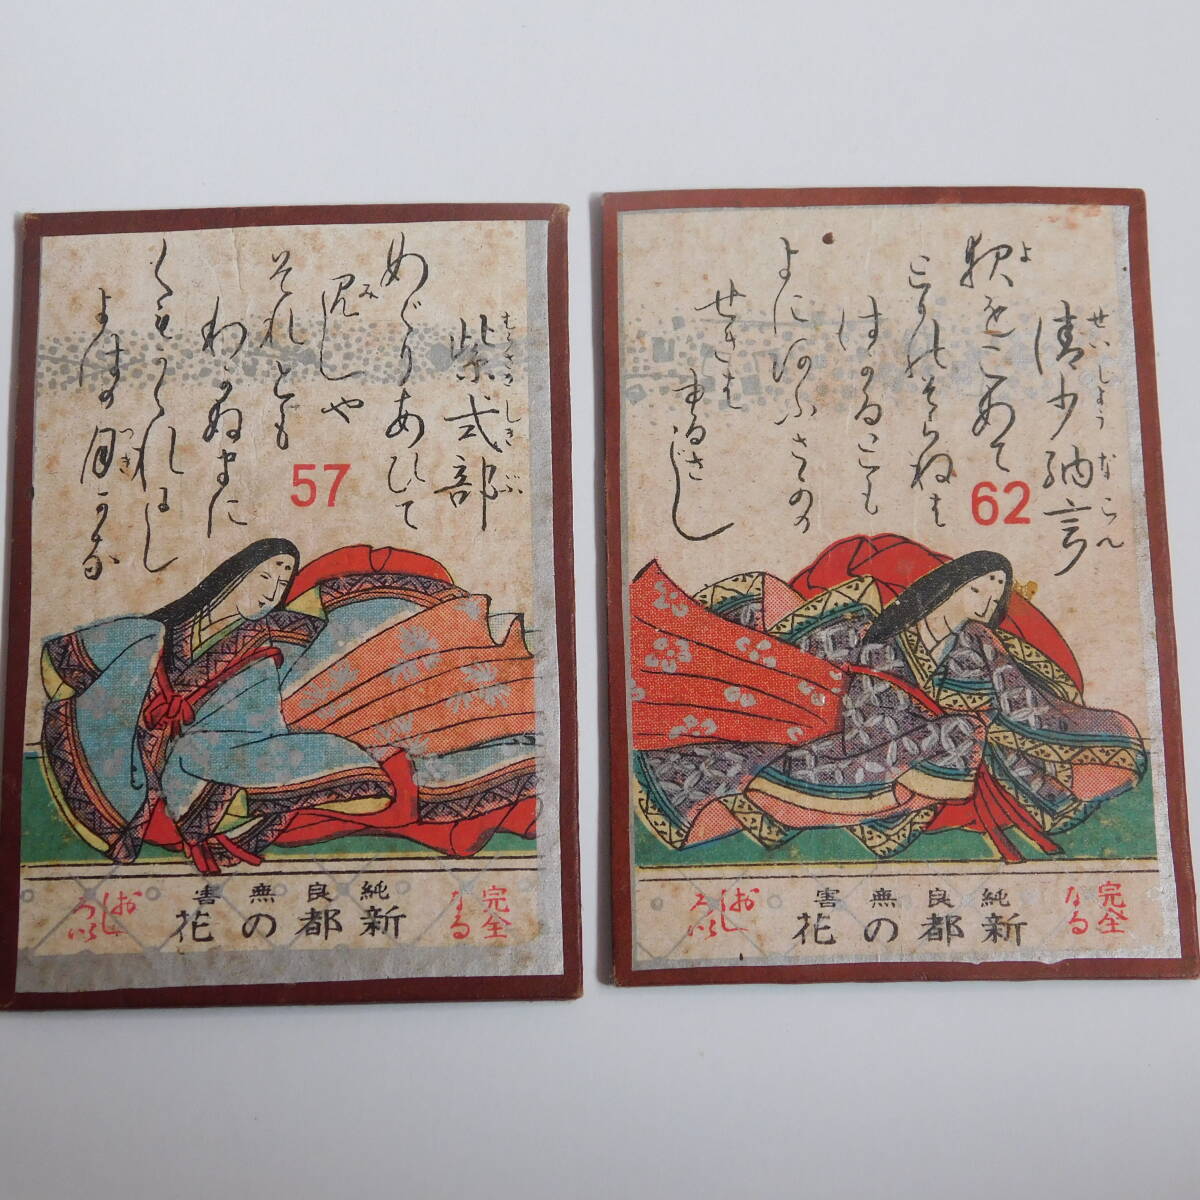 紫式部
むらさきしきぶ
めぐりあひて
見しや
み
それとも
わかぬまに
くもがくれにし
よはの月かな
つき
57
完全
なる
純良無害
新都の花
おし
ろい
清少納言
せいしょうなごん
夜をこめて
よ
とりのそらねは
はかるとも
よにあふさかの
せきは
ゆるさじ
62
完全
なる
純良無害
新都の花
おし
ろい